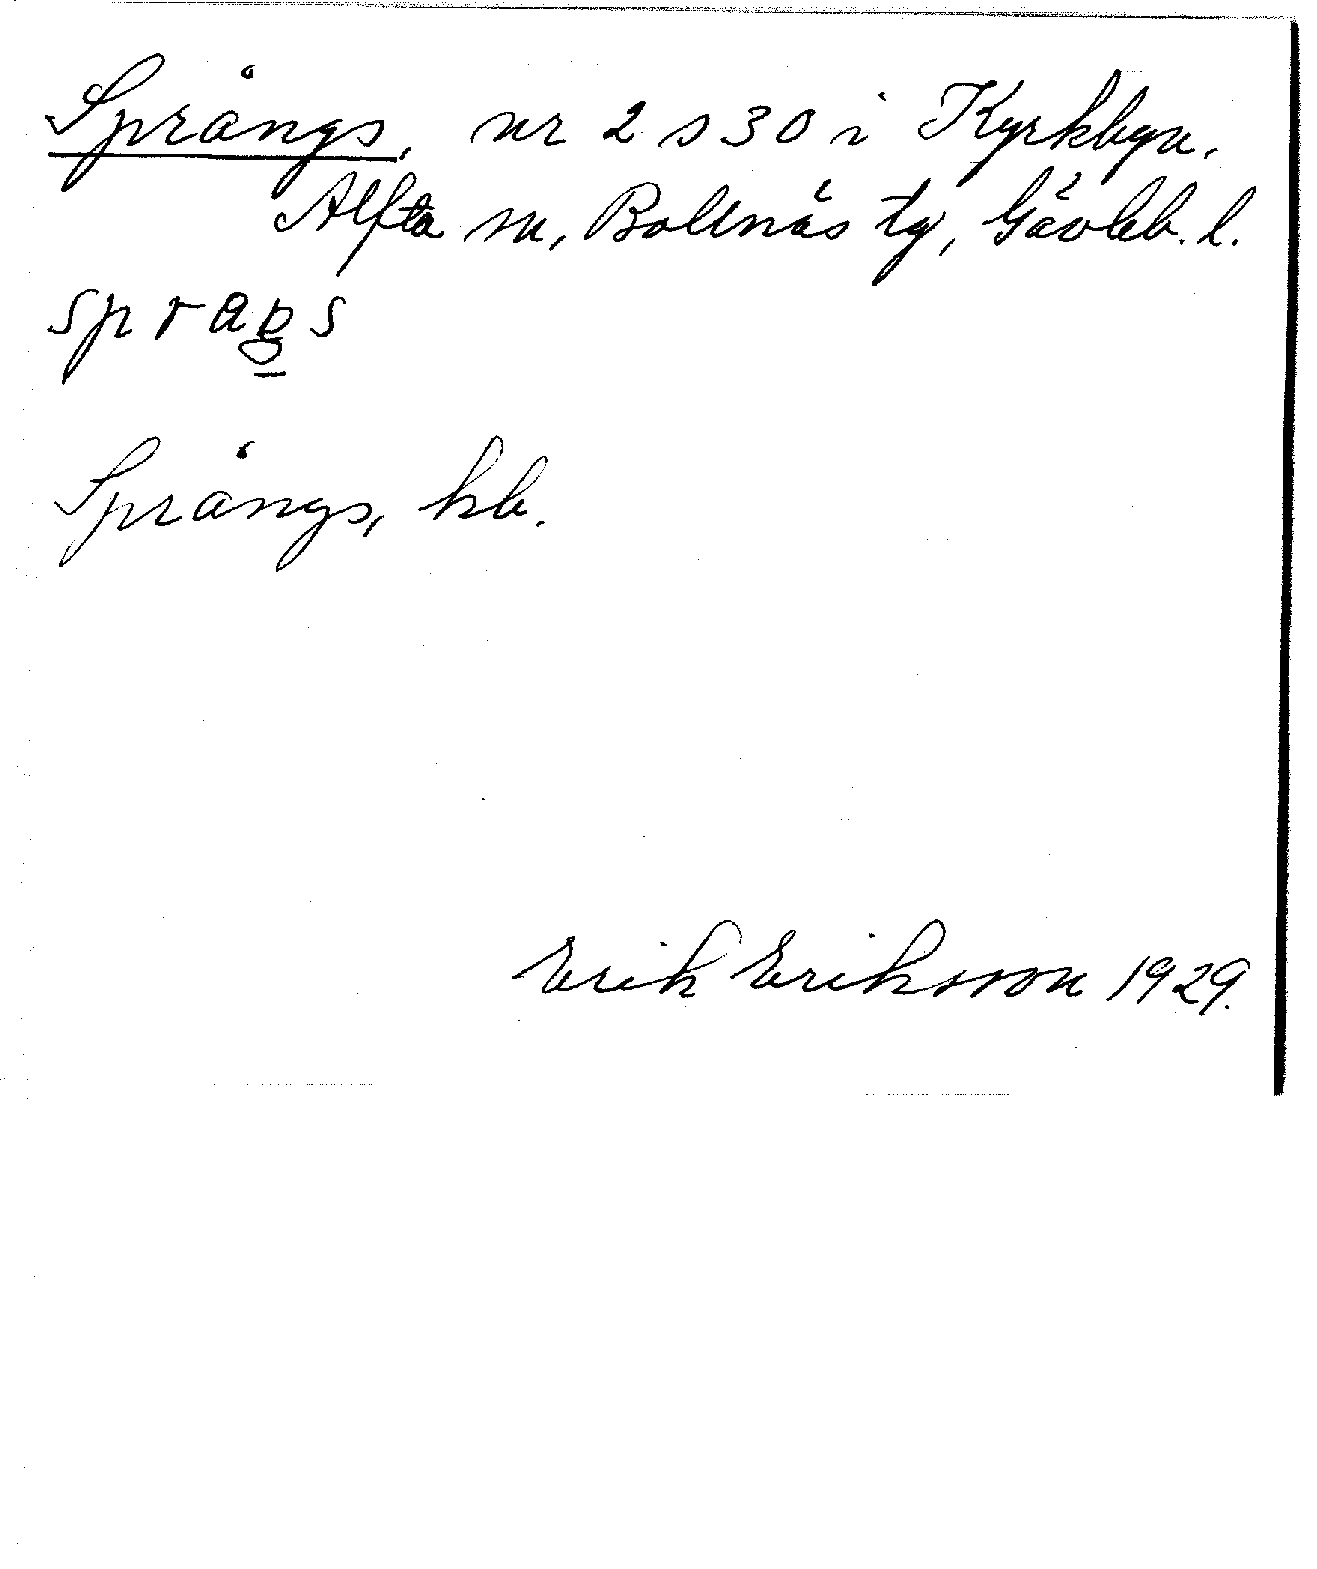 Språngs, nr 2 s 30 i Kyrkbyn.
Alfta sn, Bollnäs tg, Gävleb. l.
Språngs, kb.
Erik Eriksson 1929.